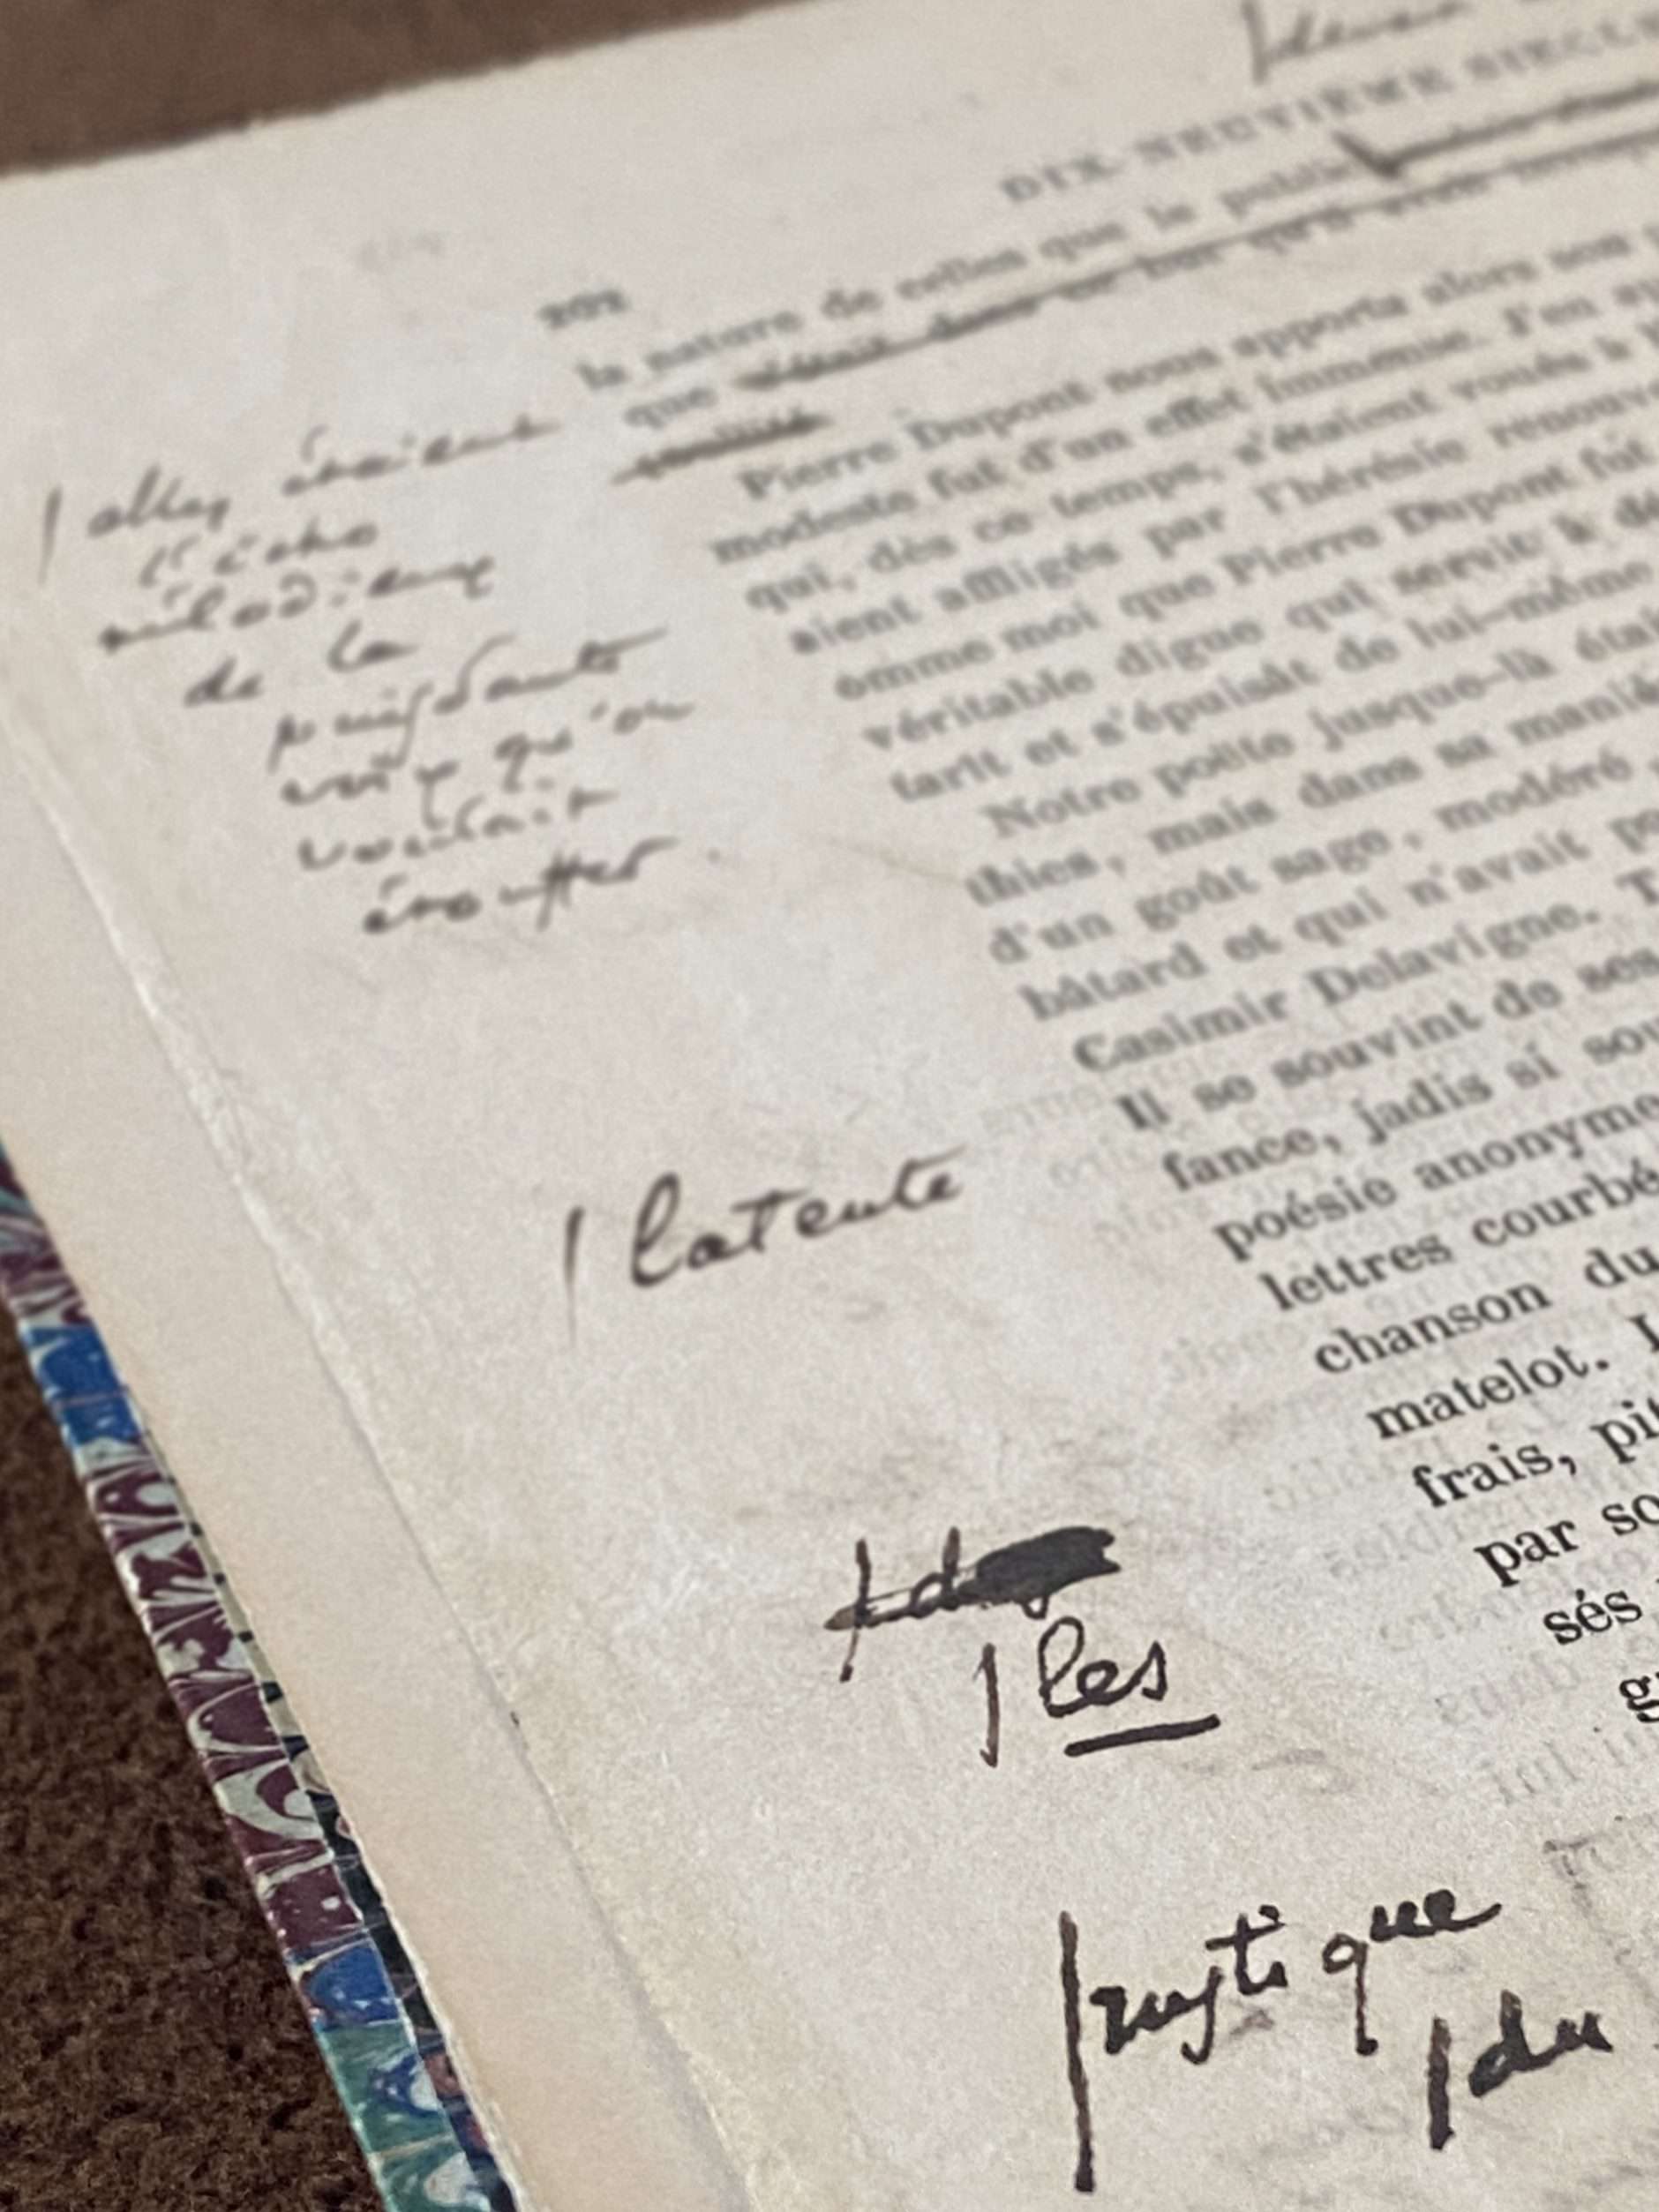 DIX-NEUVIÈME SIÈCLE
202
la nature de celles que le public
que c'était dans ce but qu'il avait
Pierre Dupont nous apporta alors son
modeste fut d'un effet immense. J'en
qui, dès ce temps, s'étaient voués à
aient affligés par l'hérésie renouve
omme moi que Pierre Dupont fut
véritable digue qui servit à dé
tarît et s'épuisât de lui-même
Notre poëte jusque-là étai
thies, mais dans sa maniè
d'un goût sage, modéré,
bâtard et qui n'avait po
Casimir Delavigne. T
Il se souvint de ses
fance, jadis si sou
poésie anonyme
lettres courbé
chanson du
matelot. I
frais, pit
par so
sés
g
elles étaient
l'écho
mélodieux
de la
puissante
voix qu'on
voulait
étouffer.
latente
les
rustique
du